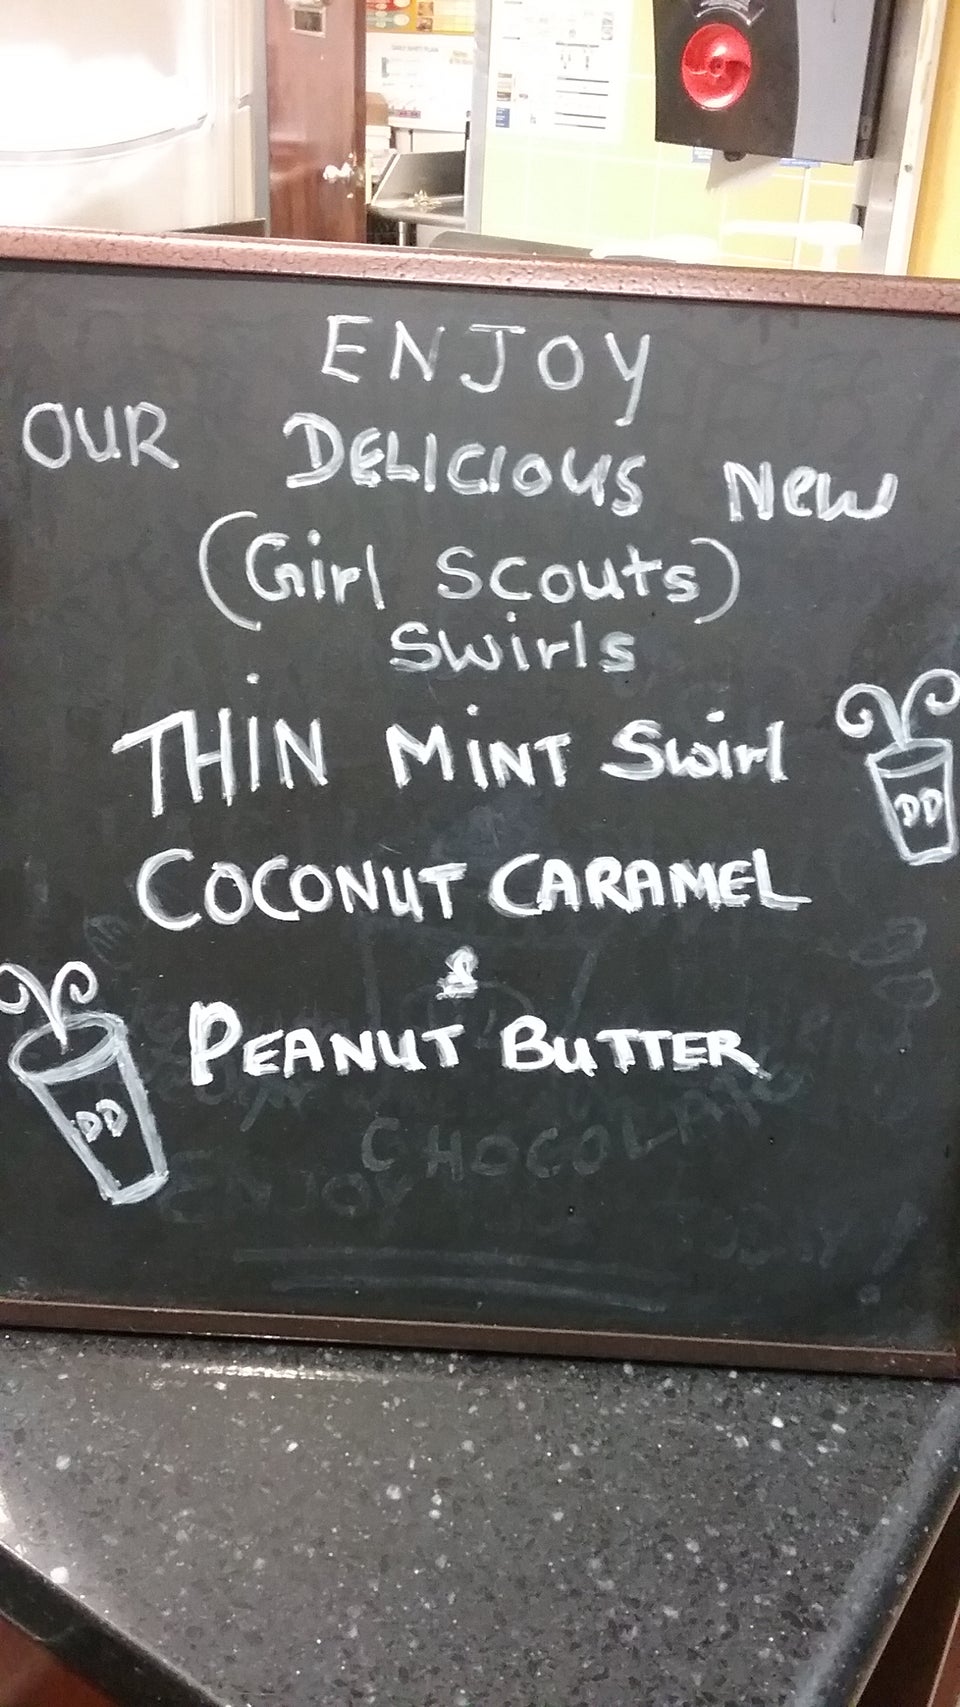 ENJOY
OUR DELICIOUS New
(Girl Scouts)
Swirls
THIN MINT Swirl
COCONUT CARAMEL
&
PEANUT BUTTER
DD
DD
CHOCOLATE
ENJOY